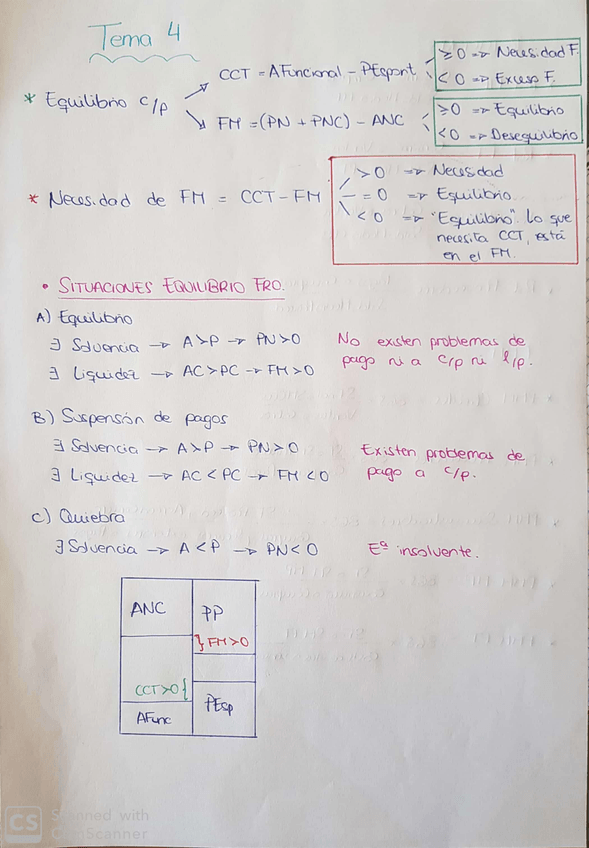 Tema 4
* Equilibrio c/p
CCT = AFuncional - PEspont.
≥0 => Necesidad F.
<0 => Exceso F.
FM = (PN + PNC) - ANC
≥0 => Equilibrio
<0 => Desequilibrio
* Necesidad de FM = CCT - FM
>0 => Necesidad
=0 => Equilibrio
<0 => "Equilibrio". Lo que
necesita CCT, está
en el FM.
• SITUACIONES EQUILIBRIO FRO.
A) Equilibrio
∃ Solvencia → A>P → PN>0
∃ Liquidez → AC>PC → FM>0
No existen problemas de
pago ni a c/p ni l/p.
B) Suspensón de pagos
∃ Solvencia → A>P → PN>0
∃ Liquidez → AC<PC → FM<0
Existen problemas de
pago a c/p.
C) Quiebra
∃ Solvencia → A<P → PN<0
Eª insolvente.
ANC
PP
} FM>0
CCT>0 {
AFunc
PEsp
CS
Scanned with
CamScanner